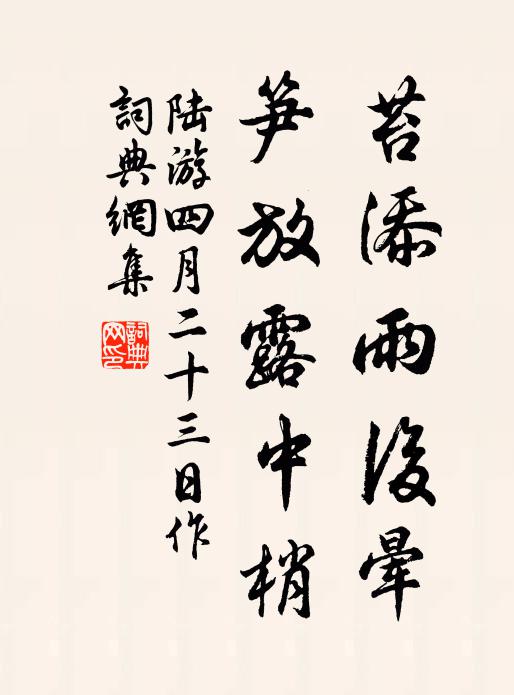 苔添雨後暈
笋放露中梢
陆游四月二十三日作
詞典網集
詞典网印